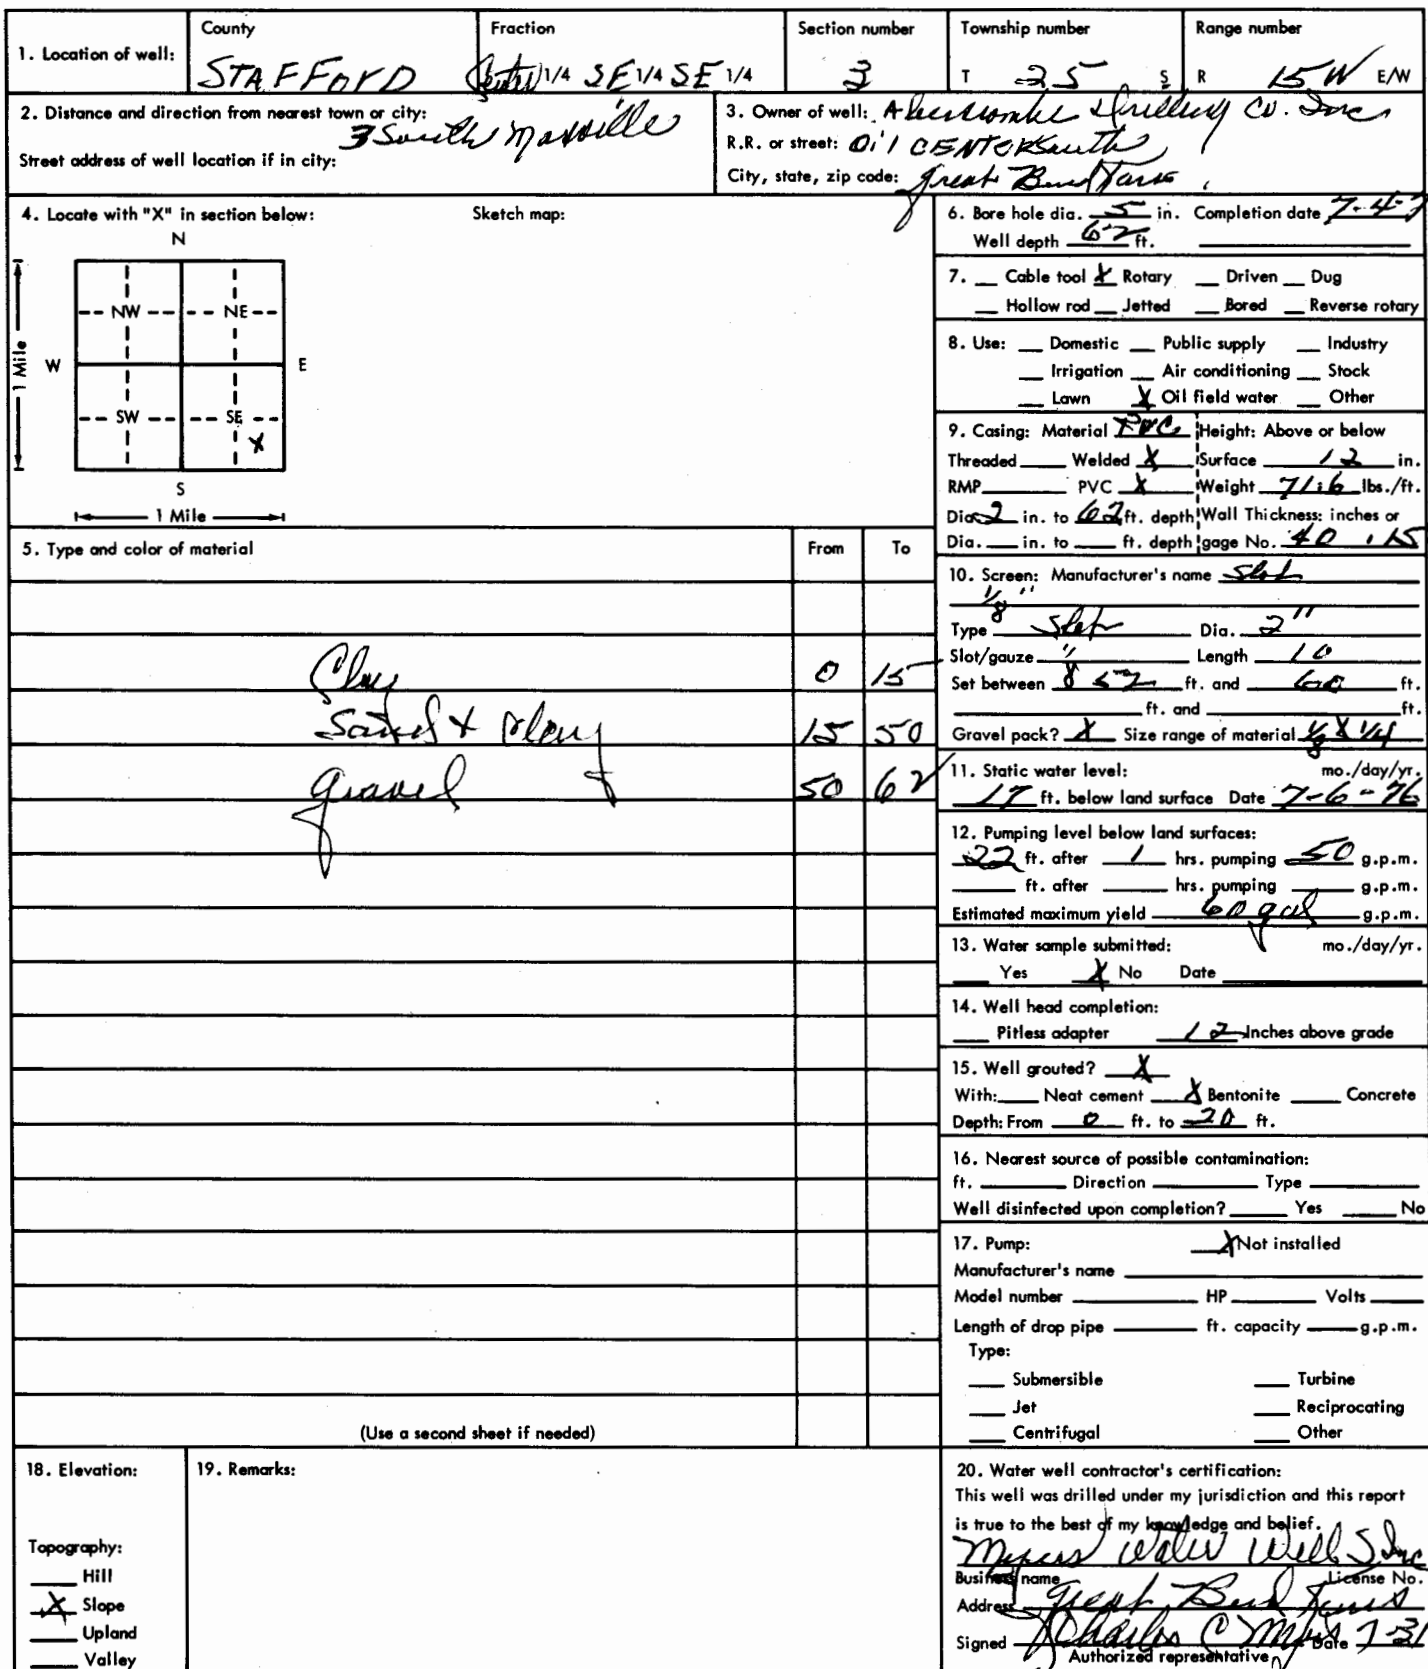 1. Location of well:
County
STAFFORD
Fraction
Center 1/4 SE 1/4 SE 1/4
Section number
3
Township number
T 25 S
Range number
R 15W E/W
2. Distance and direction from nearest town or city:
3 South
Street address of well location if in city:
3. Owner of well: Abercrombie Drilling Co. Inc
R.R. or street: Oil CENTER South
City, state, zip code: Great Bend Kans
4. Locate with "X" in section below:
Sketch map:
N
NW NE
W E
SW SE
X
S
1 Mile
1 Mile
5. Type and color of material From To
Clay 0 15
Sand & Clay 15 50
gravel 50 62
(Use a second sheet if needed)
6. Bore hole dia. 5 in. Completion date 7-4-7
Well depth 62 ft.
7. Cable tool X Rotary Driven Dug
Hollow rod Jetted Bored Reverse rotary
8. Use: Domestic Public supply Industry
Irrigation Air conditioning Stock
Lawn X Oil field water Other
9. Casing: Material PVC Height: Above or below
Threaded Welded X Surface 12 in.
RMP PVC X Weight 71.6 lbs./ft.
Dia. 2 in. to 62 ft. depth Wall Thickness: inches or
Dia. in. to ft. depth gage No. 40 .15
10. Screen: Manufacturer's name Slot
1/8 "
Type Slot Dia. 2"
Slot/gauze 1/8 Length 10
Set between 52 ft. and 60 ft.
ft. and ft.
Gravel pack? X Size range of material 1/8 X 1/4
11. Static water level: mo./day/yr.
17 ft. below land surface Date 7-6-76
12. Pumping level below land surfaces:
22 ft. after 1 hrs. pumping 50 g.p.m.
ft. after hrs. pumping g.p.m.
Estimated maximum yield 60 gal g.p.m.
13. Water sample submitted: mo./day/yr.
Yes X No Date
14. Well head completion:
Pitless adapter 12 Inches above grade
15. Well grouted? X
With: Neat cement X Bentonite Concrete
Depth: From 0 ft. to 20 ft.
16. Nearest source of possible contamination:
ft. Direction Type
Well disinfected upon completion? Yes No
17. Pump: X Not installed
Manufacturer's name
Model number HP Volts
Length of drop pipe ft. capacity g.p.m.
Type:
Submersible Turbine
Jet Reciprocating
Centrifugal Other
18. Elevation:
Topography:
Hill
X Slope
Upland
Valley
19. Remarks:
20. Water well contractor's certification:
This well was drilled under my jurisdiction and this report
is true to the best of my knowledge and belief.
Myers Water Well S Inc
Business name License No.
Address Great Bend Kans
Signed Charles C Myers Date 7-31
Authorized representative